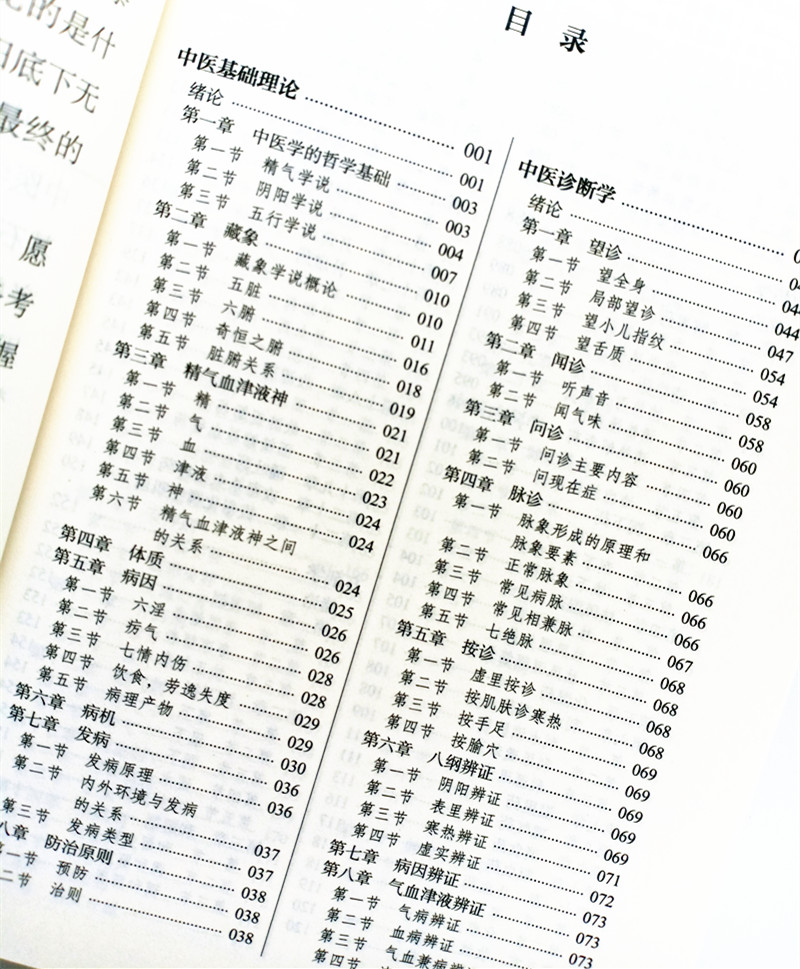 记的是什
日底下无
最终的
愿
考
握
目 录
中医基础理论 001
绪论 001
第一章 中医学的哲学基础 003
第一节 精气学说 003
第二节 阴阳学说 004
第三节 五行学说 007
第二章 藏象 010
第一节 藏象学说概论 010
第二节 五脏 011
第三节 六腑 016
第四节 奇恒之腑 018
第五节 脏腑关系 019
第三章 精气血津液神 021
第一节 精 021
第二节 气 022
第三节 血 023
第四节 津液 024
第五节 神 024
第六节 精气血津液神之间
的关系 024
第四章 体质 025
第五章 病因 026
第一节 六淫 026
第二节 疠气 028
第三节 七情内伤 028
第四节 饮食，劳逸失度 029
第五节 病理产物 029
第六章 病机 030
第七章 发病 036
第一节 发病原理 036
第二节 内外环境与发病
的关系 037
第三节 发病类型 037
八章 防治原则 038
第一节 预防 038
二节 治则 038
中医诊断学
绪论
第一章 望诊 044
第一节 望全身 044
第二节 局部望诊 047
第三节 望小儿指纹 054
第四节 望舌质 054
第二章 闻诊 058
第一节 听声音 058
第二节 闻气味 060
第三章 问诊 060
第一节 问诊主要内容 060
第二节 问现在症 060
第四章 脉诊 066
第一节 脉象形成的原理和
脉象要素 066
第二节 正常脉象 066
第三节 常见病脉 066
第四节 常见相兼脉 067
第五节 七绝脉 068
第五章 按诊 068
第一节 虚里按诊 068
第二节 按肌肤诊寒热 068
第三节 按手足 069
第四节 按腧穴 069
第六章 八纲辨证 069
第一节 阴阳辨证 069
第二节 表里辨证 071
第三节 寒热辨证 072
第四节 虚实辨证 073
第七章 病因辨证 073
第八章 气血津液辨证 073
第一节 气病辨证
第二节 血病辨证
第三节 气血兼病辨证
第四节